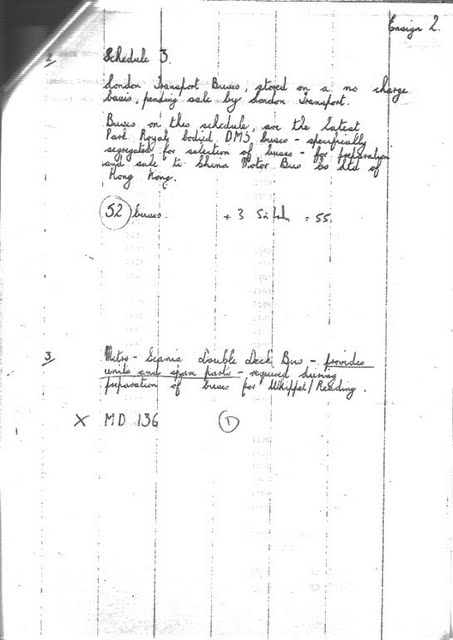 Ensign 2.
2 Schedule 3.
London Transport Buses, stored on a no charge
basis, pending sale by London Transport.
Buses on this schedule, are the latest
Park Royal bodied DMS buses - specifically
segregated for selection of buses - for preparation
and sale to China Motor Bus Co Ltd of
Hong Kong.
52 buses. + 3 = 55.
3/ Metro-Scania Double Deck Bus - provides
units and spare parts - required during
preparation of buses for Whippet/Reading.
X MD 136 1